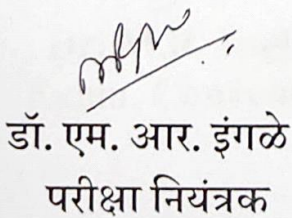 डॉ. एम. आर. इंगळे
परीक्षा नियंत्रक